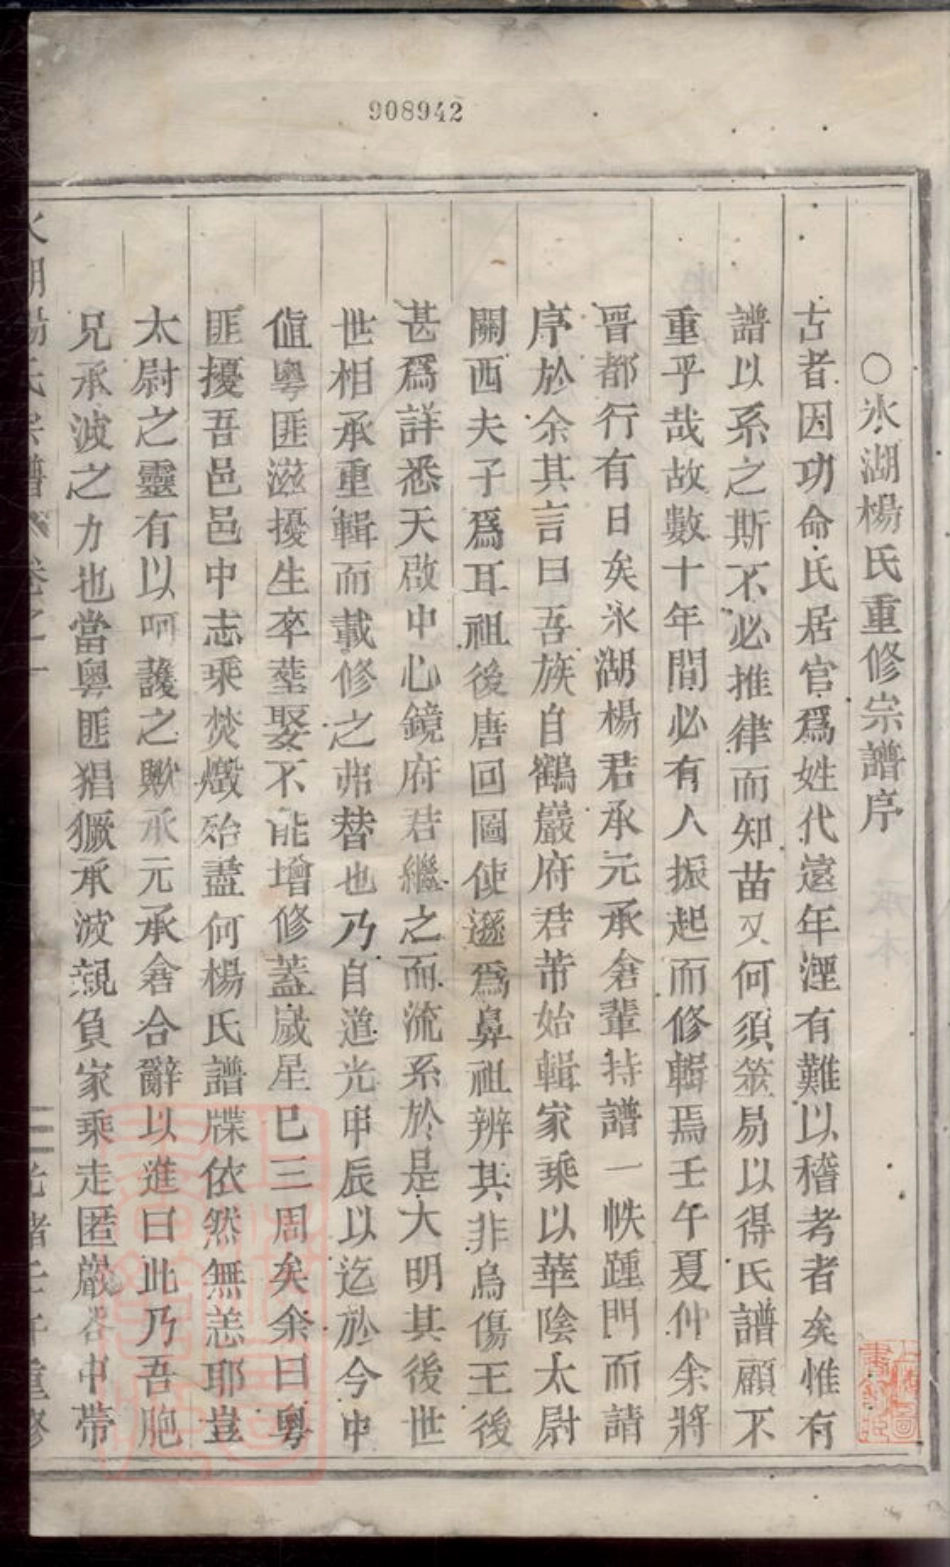 908942
○氷湖楊氏重修宗譜序
古者因功命氏居官爲姓代遠年湮有難以稽考者矣惟有
譜以系之斯不必推律而知苗又何須筮易以得氏譜顧不
重乎哉故數十年間必有人振起而修輯焉壬午夏仲余將
晋都行有日矣氷湖楊君承元承畲輩持譜一帙踵門而請
序於余其言曰吾族自鶴巖府君芾始輯家乘以華陰太尉
關西夫子爲耳祖後唐回圖使遜爲鼻祖辨其非烏傷王後
甚爲詳悉天啟中心鏡府君繼之而流系於是大明其後世
世相承重輯而載修之弗替也乃自道光甲辰以迄於今中
值粵匪滋擾生卒塟娶不能增修蓋歲星巳三周矣余曰粵
匪擾吾邑邑中志乘焚燬殆盡何楊氏譜牒依然無恙耶豈
太尉之靈有以呵護之歟承元承畲合辭以進曰此乃吾胞
兄承波之力也當粵匪猖獗承波親負家乘走匿巖谷中帶
氷湖楊氏宗譜 卷之一 二 光緒壬午重修